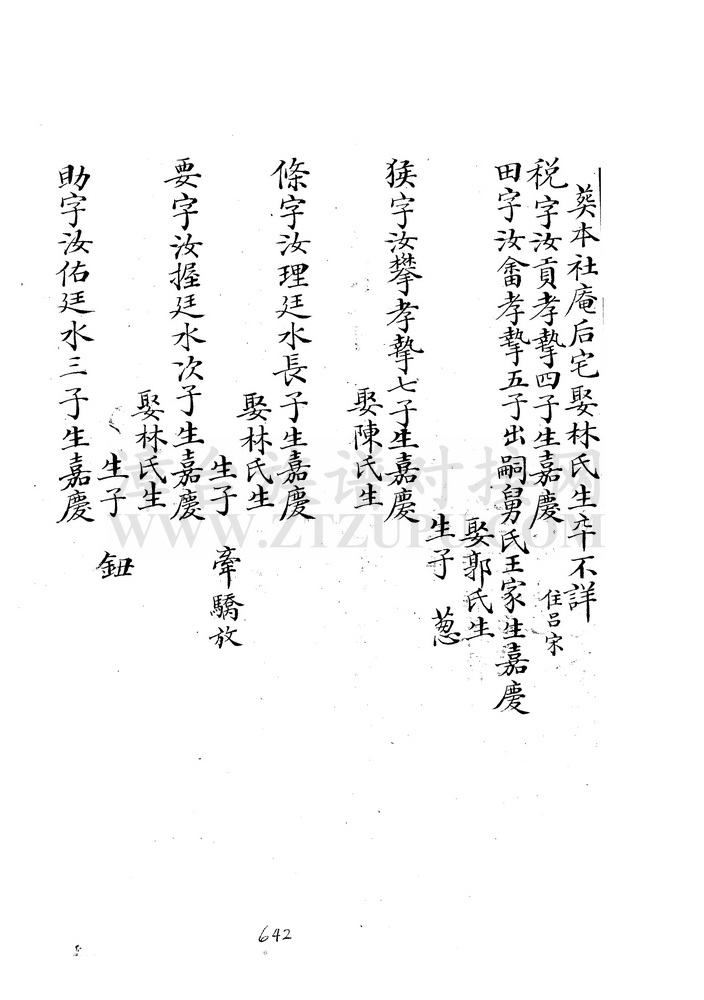 葬本社庵后宅娶林氏生卒不詳
税字汝貢孝摯四子生嘉慶 住呂宋
田字汝畬孝摯五子出嗣舅氏王家生嘉慶
娶郭氏生
生子 葱
猴字汝攀孝摯七子生嘉慶
娶陳氏生
條字汝理廷水長子生嘉慶
娶林氏生
生子 牽驕放
要字汝握廷水次子生嘉慶
娶林氏生
生子 鈕
助字汝佑廷水三子生嘉慶
642
WWW.ZTZUPU.COM